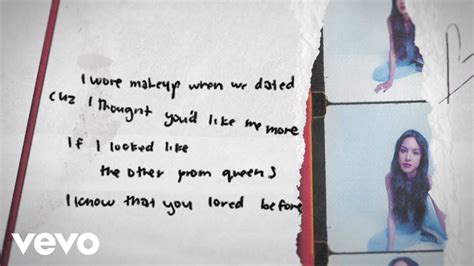 I wore makeup when we dated
cuz I thought you'd like me more
If I looked like
the other prom queens
I know that you loved before
vevo